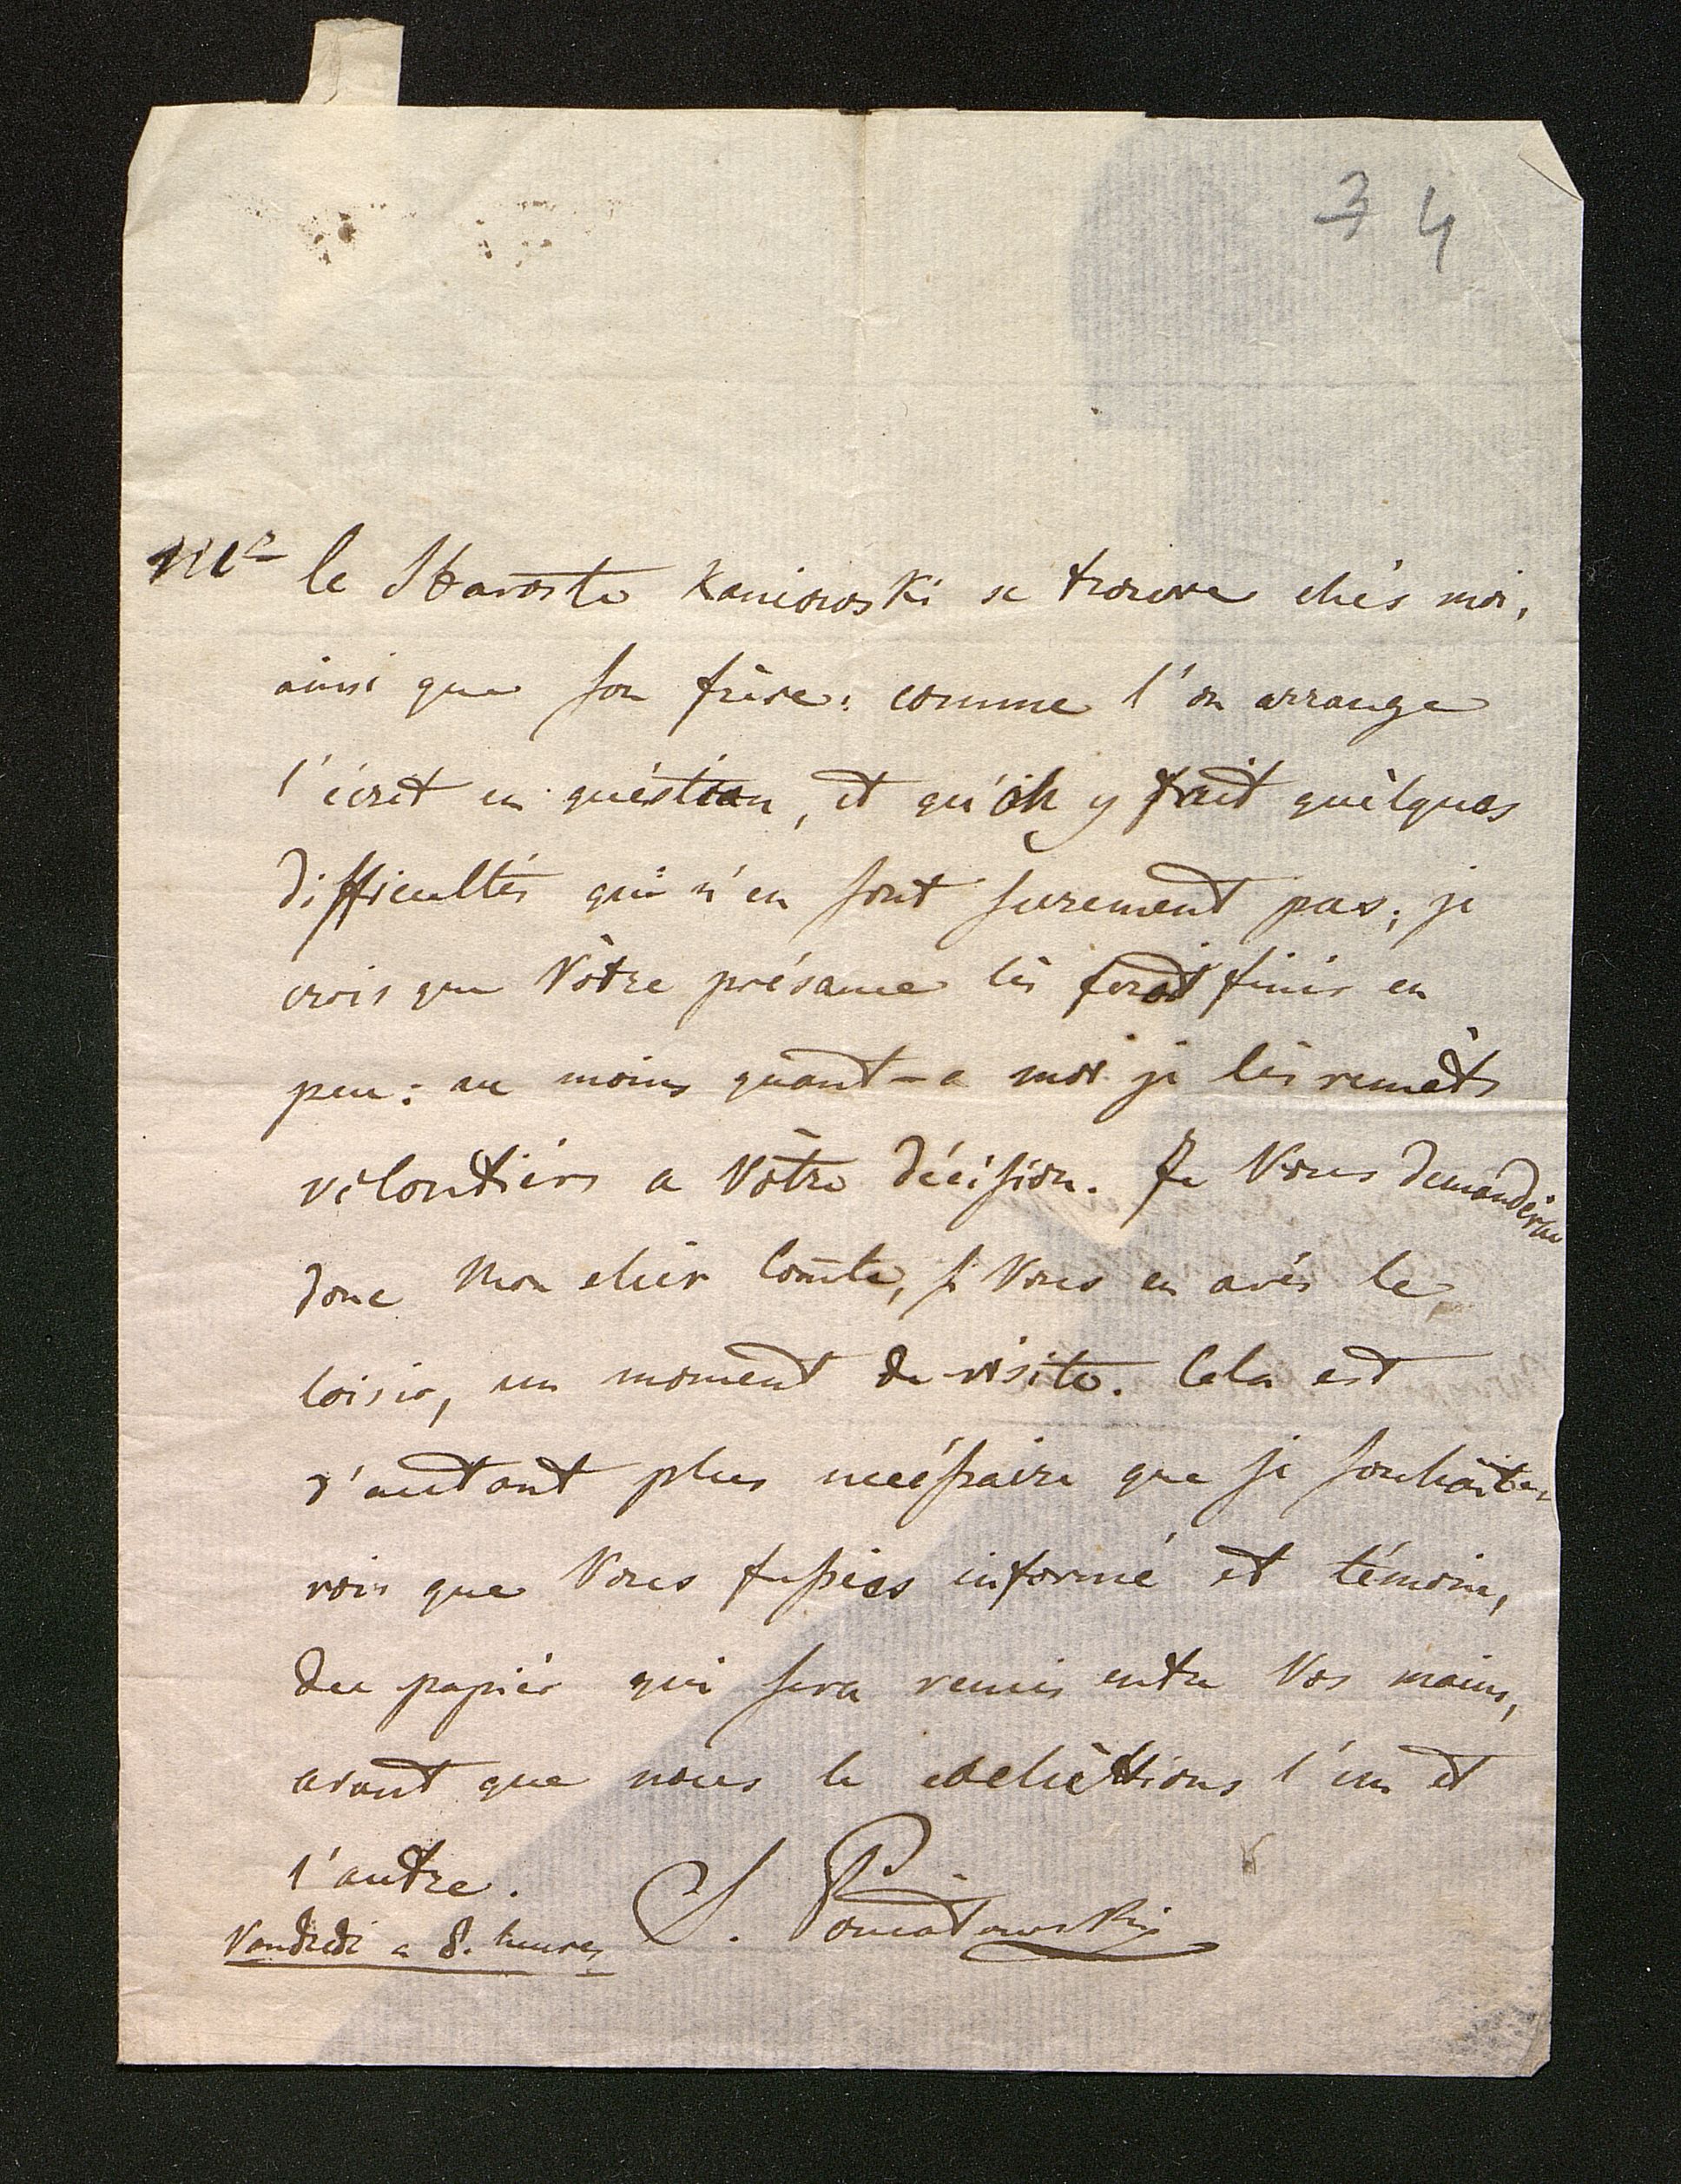 3 4
Mr le Staroste Kaniowski se trouve chés moi,
ainsi que son frère: comme l'on arrange
l'écrit en quéstion, et qu'on y fait quèlques
difficultés qui n'en sont surement pas; je
crois que Vôtre présance lès feroit finir en
peu: au moins quant-a moi je lès remèts
volontiérs a Vôtre décision. Je Vous demanderai
donc Mon chér Comte, si Vous en avés le
loisir, un moment de visite. Cela est
d'autant plus nécéssaire que je souhaite-
rois que Vous fussiés informé et témoin,
du papiér qui sera remis entre Vos mains,
avant que nous le cachèttions l'un et
l'autre.
Vandredi a 8. heures S. Poniatowski